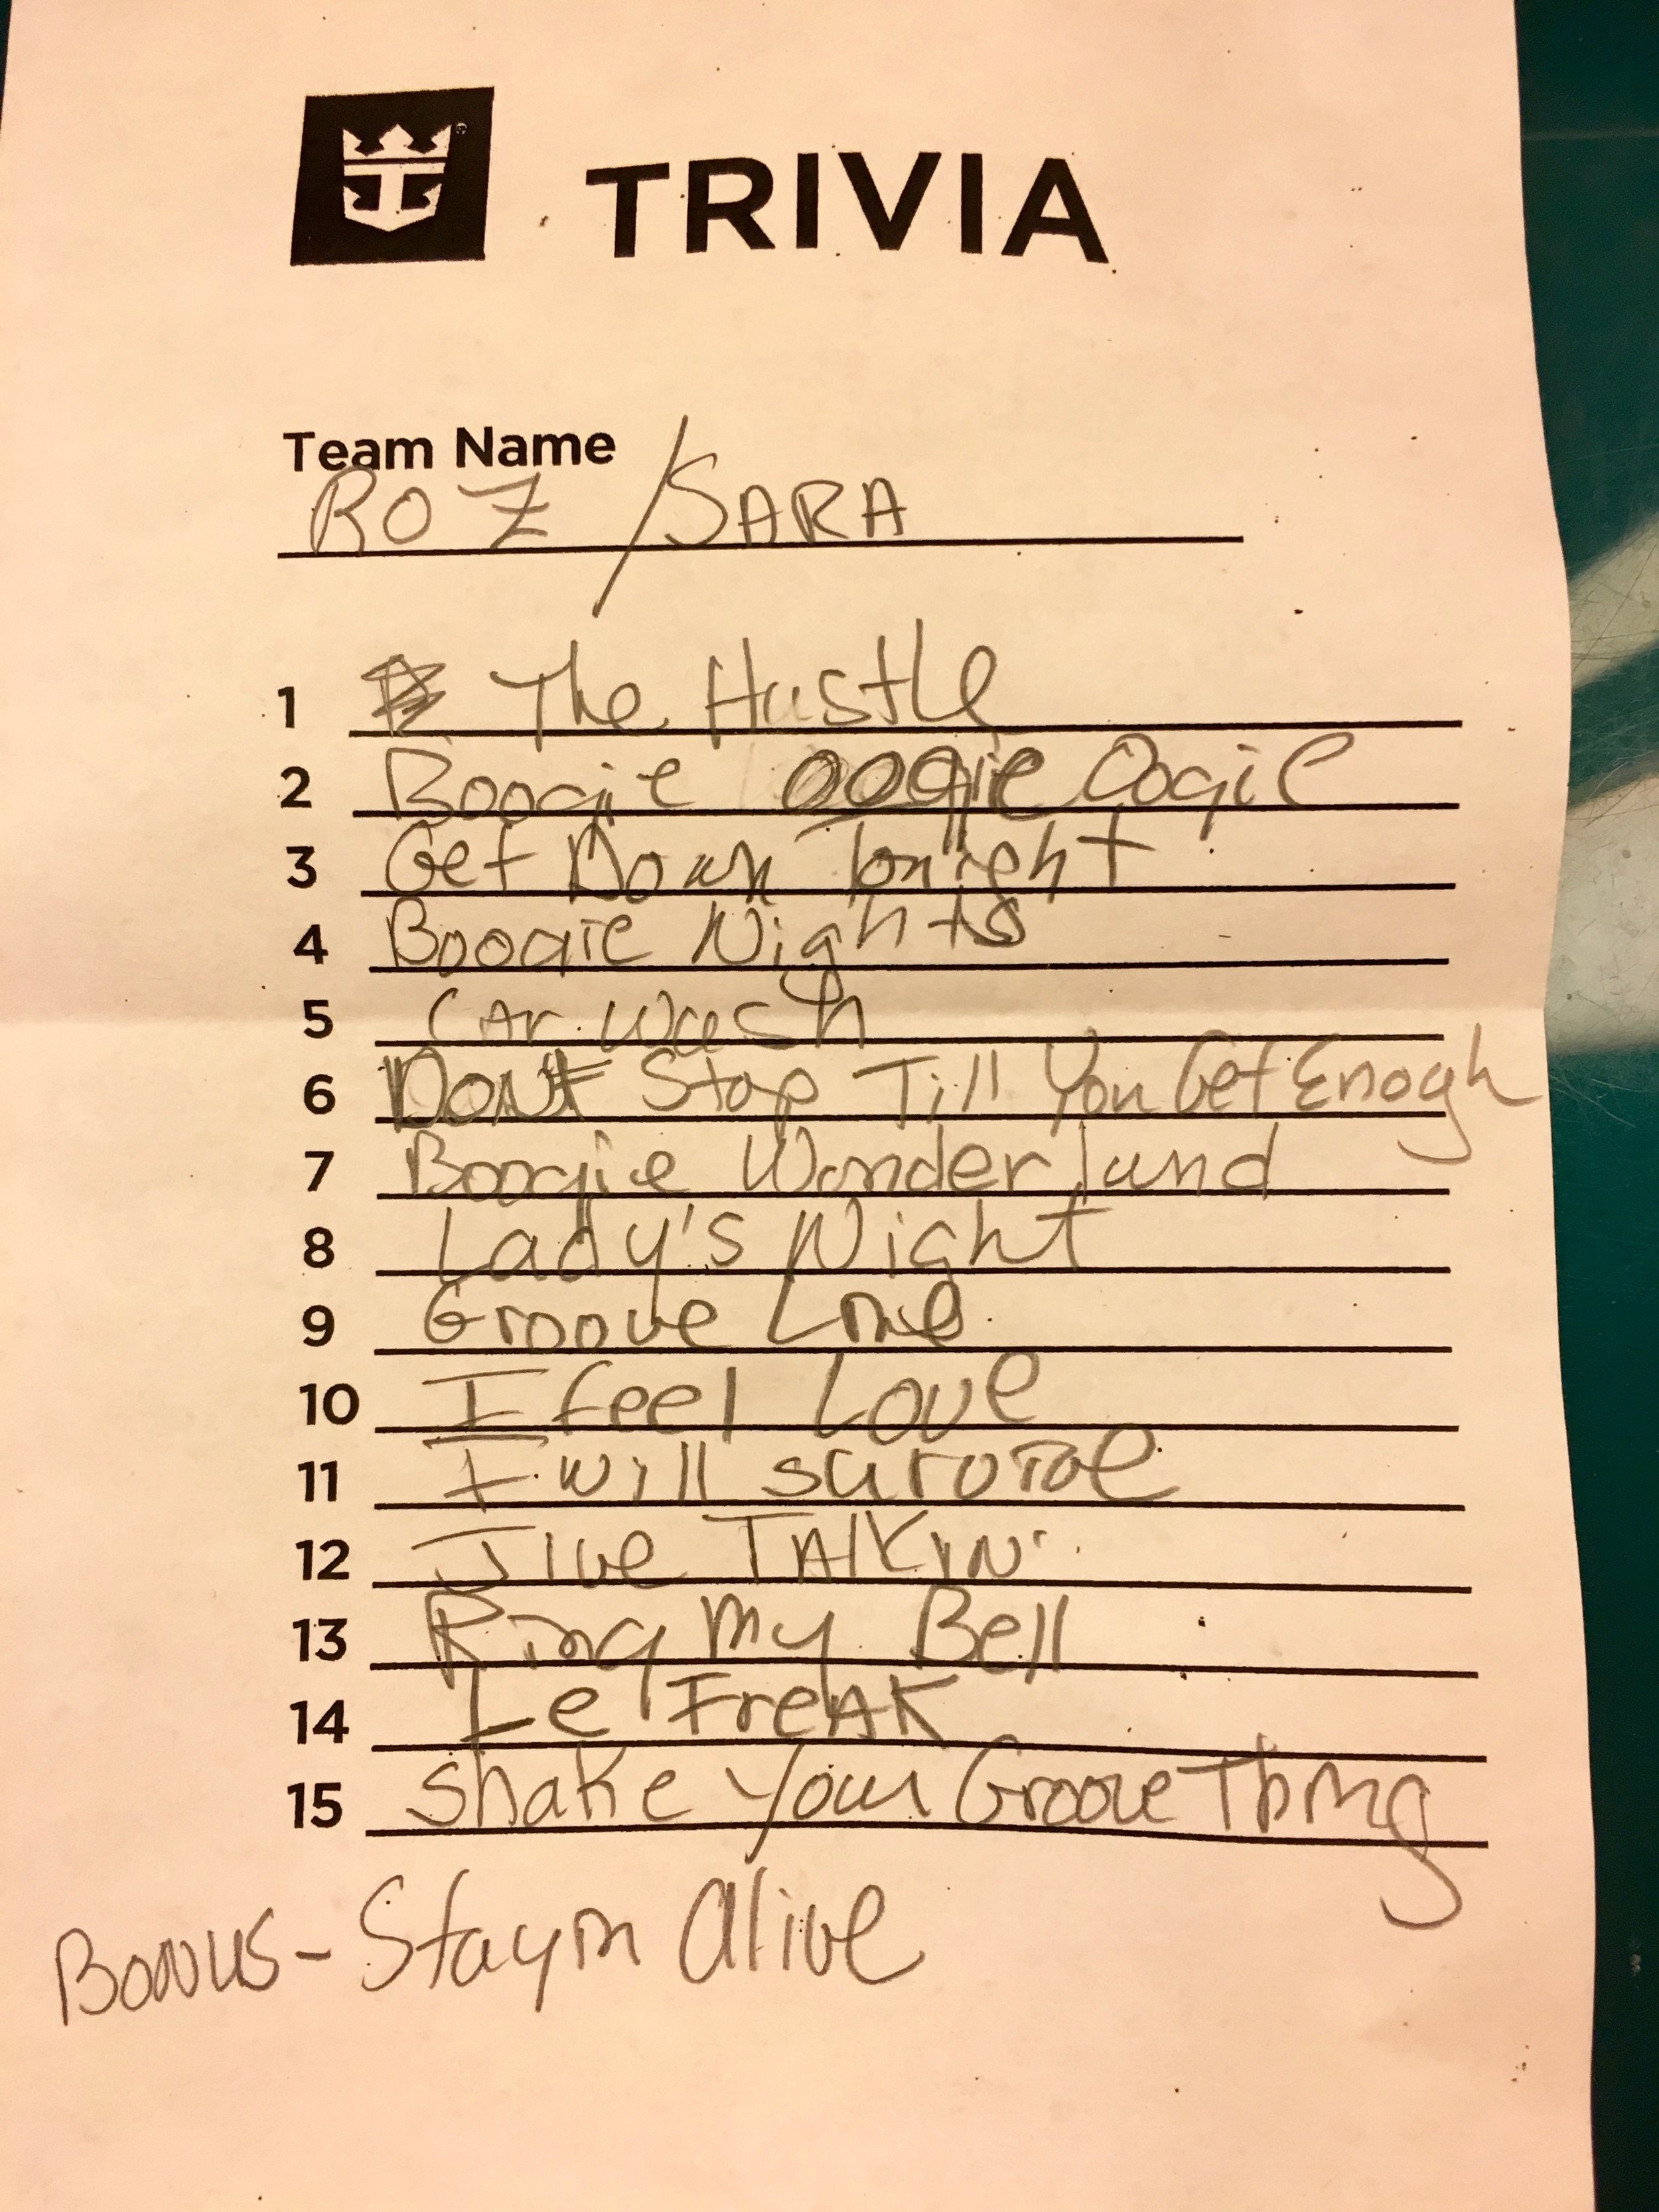 TRIVIA
Team Name
ROZ / SARA
1 The Hustle
2 Boogie oogie Oogie
3 Get Down Tonight
4 Boogie Nights
5 CAr Wash
6 DON'T Stop Till You Get Enogh
7 Boogie Wonderland
8 Lady's Night
9 Groove Line
10 I feel Love
11 I will survive
12 Jive TAlKiN'
13 Ring My Bell
14 Le FreAK
15 Shake Your Groove Thing
BONUS - Stayin Alive